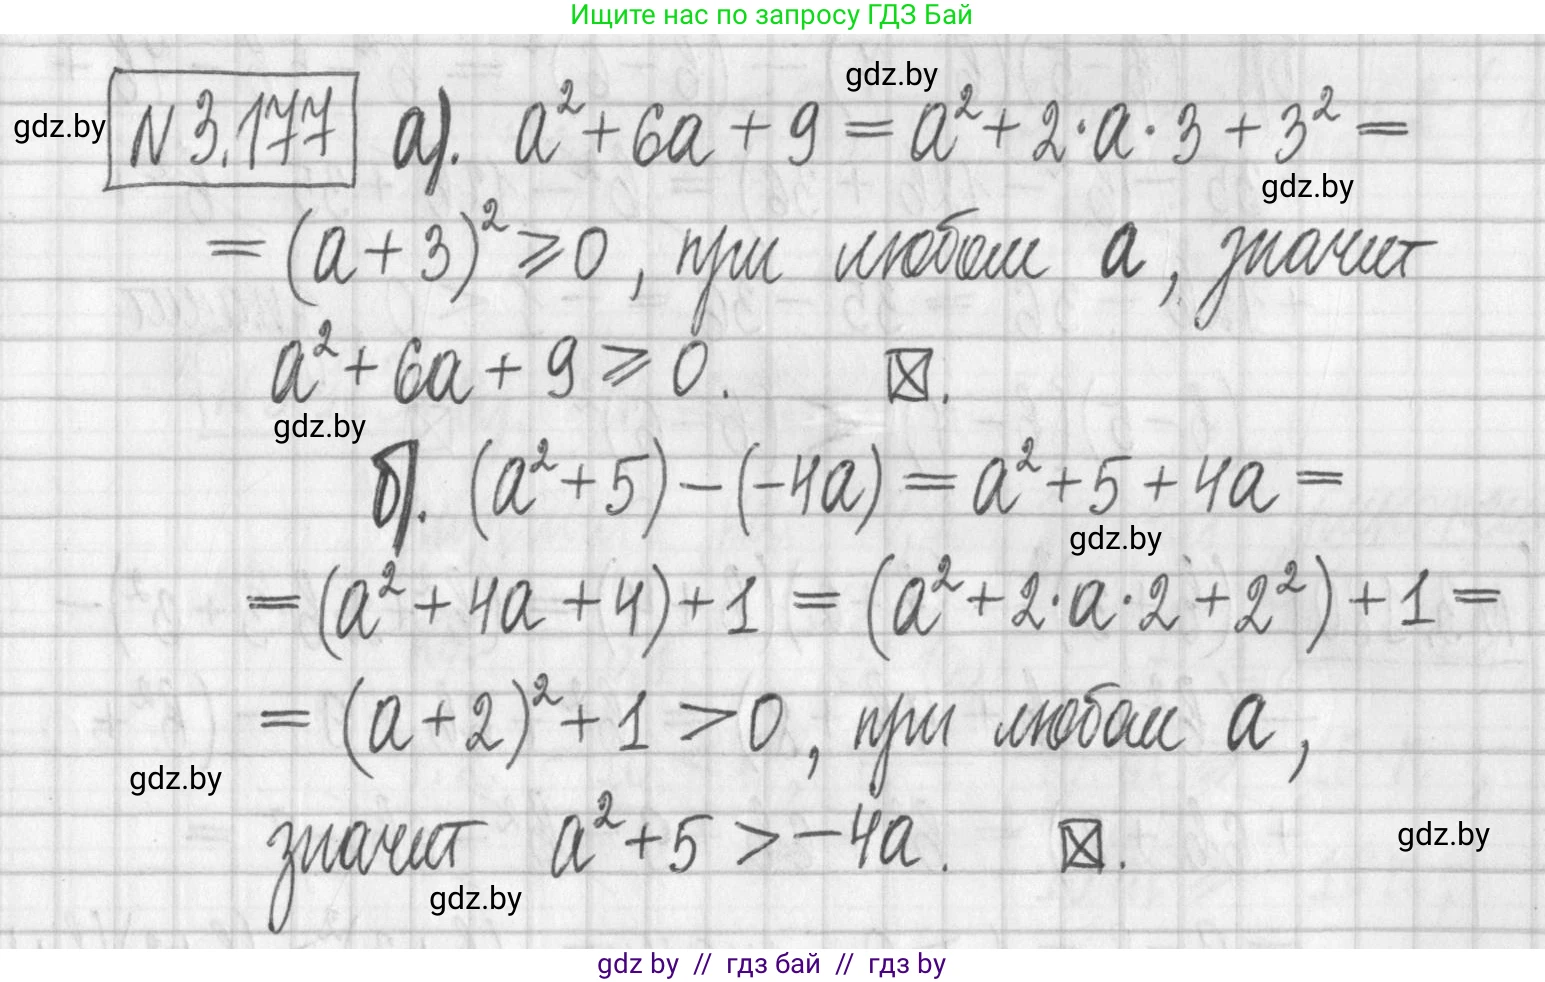 Ищите нас по запросу ГДЗ Бай
gdz.by
gdz.by
N 3.177 а). a² + 6a + 9 = a² + 2·a·3 + 3² =
gdz.by
= (a + 3)² ⩾ 0, при любом a, значит
a² + 6a + 9 ⩾ 0. ☒.
gdz.by
б). (a² + 5) − (−4a) = a² + 5 + 4a =
gdz.by
= (a² + 4a + 4) + 1 = (a² + 2·a·2 + 2²) + 1 =
= (a + 2)² + 1 > 0, при любом a,
gdz.by
значит a² + 5 > −4a. ☒.
gdz.by
gdz.by
gdz by // гдз бай // гдз by